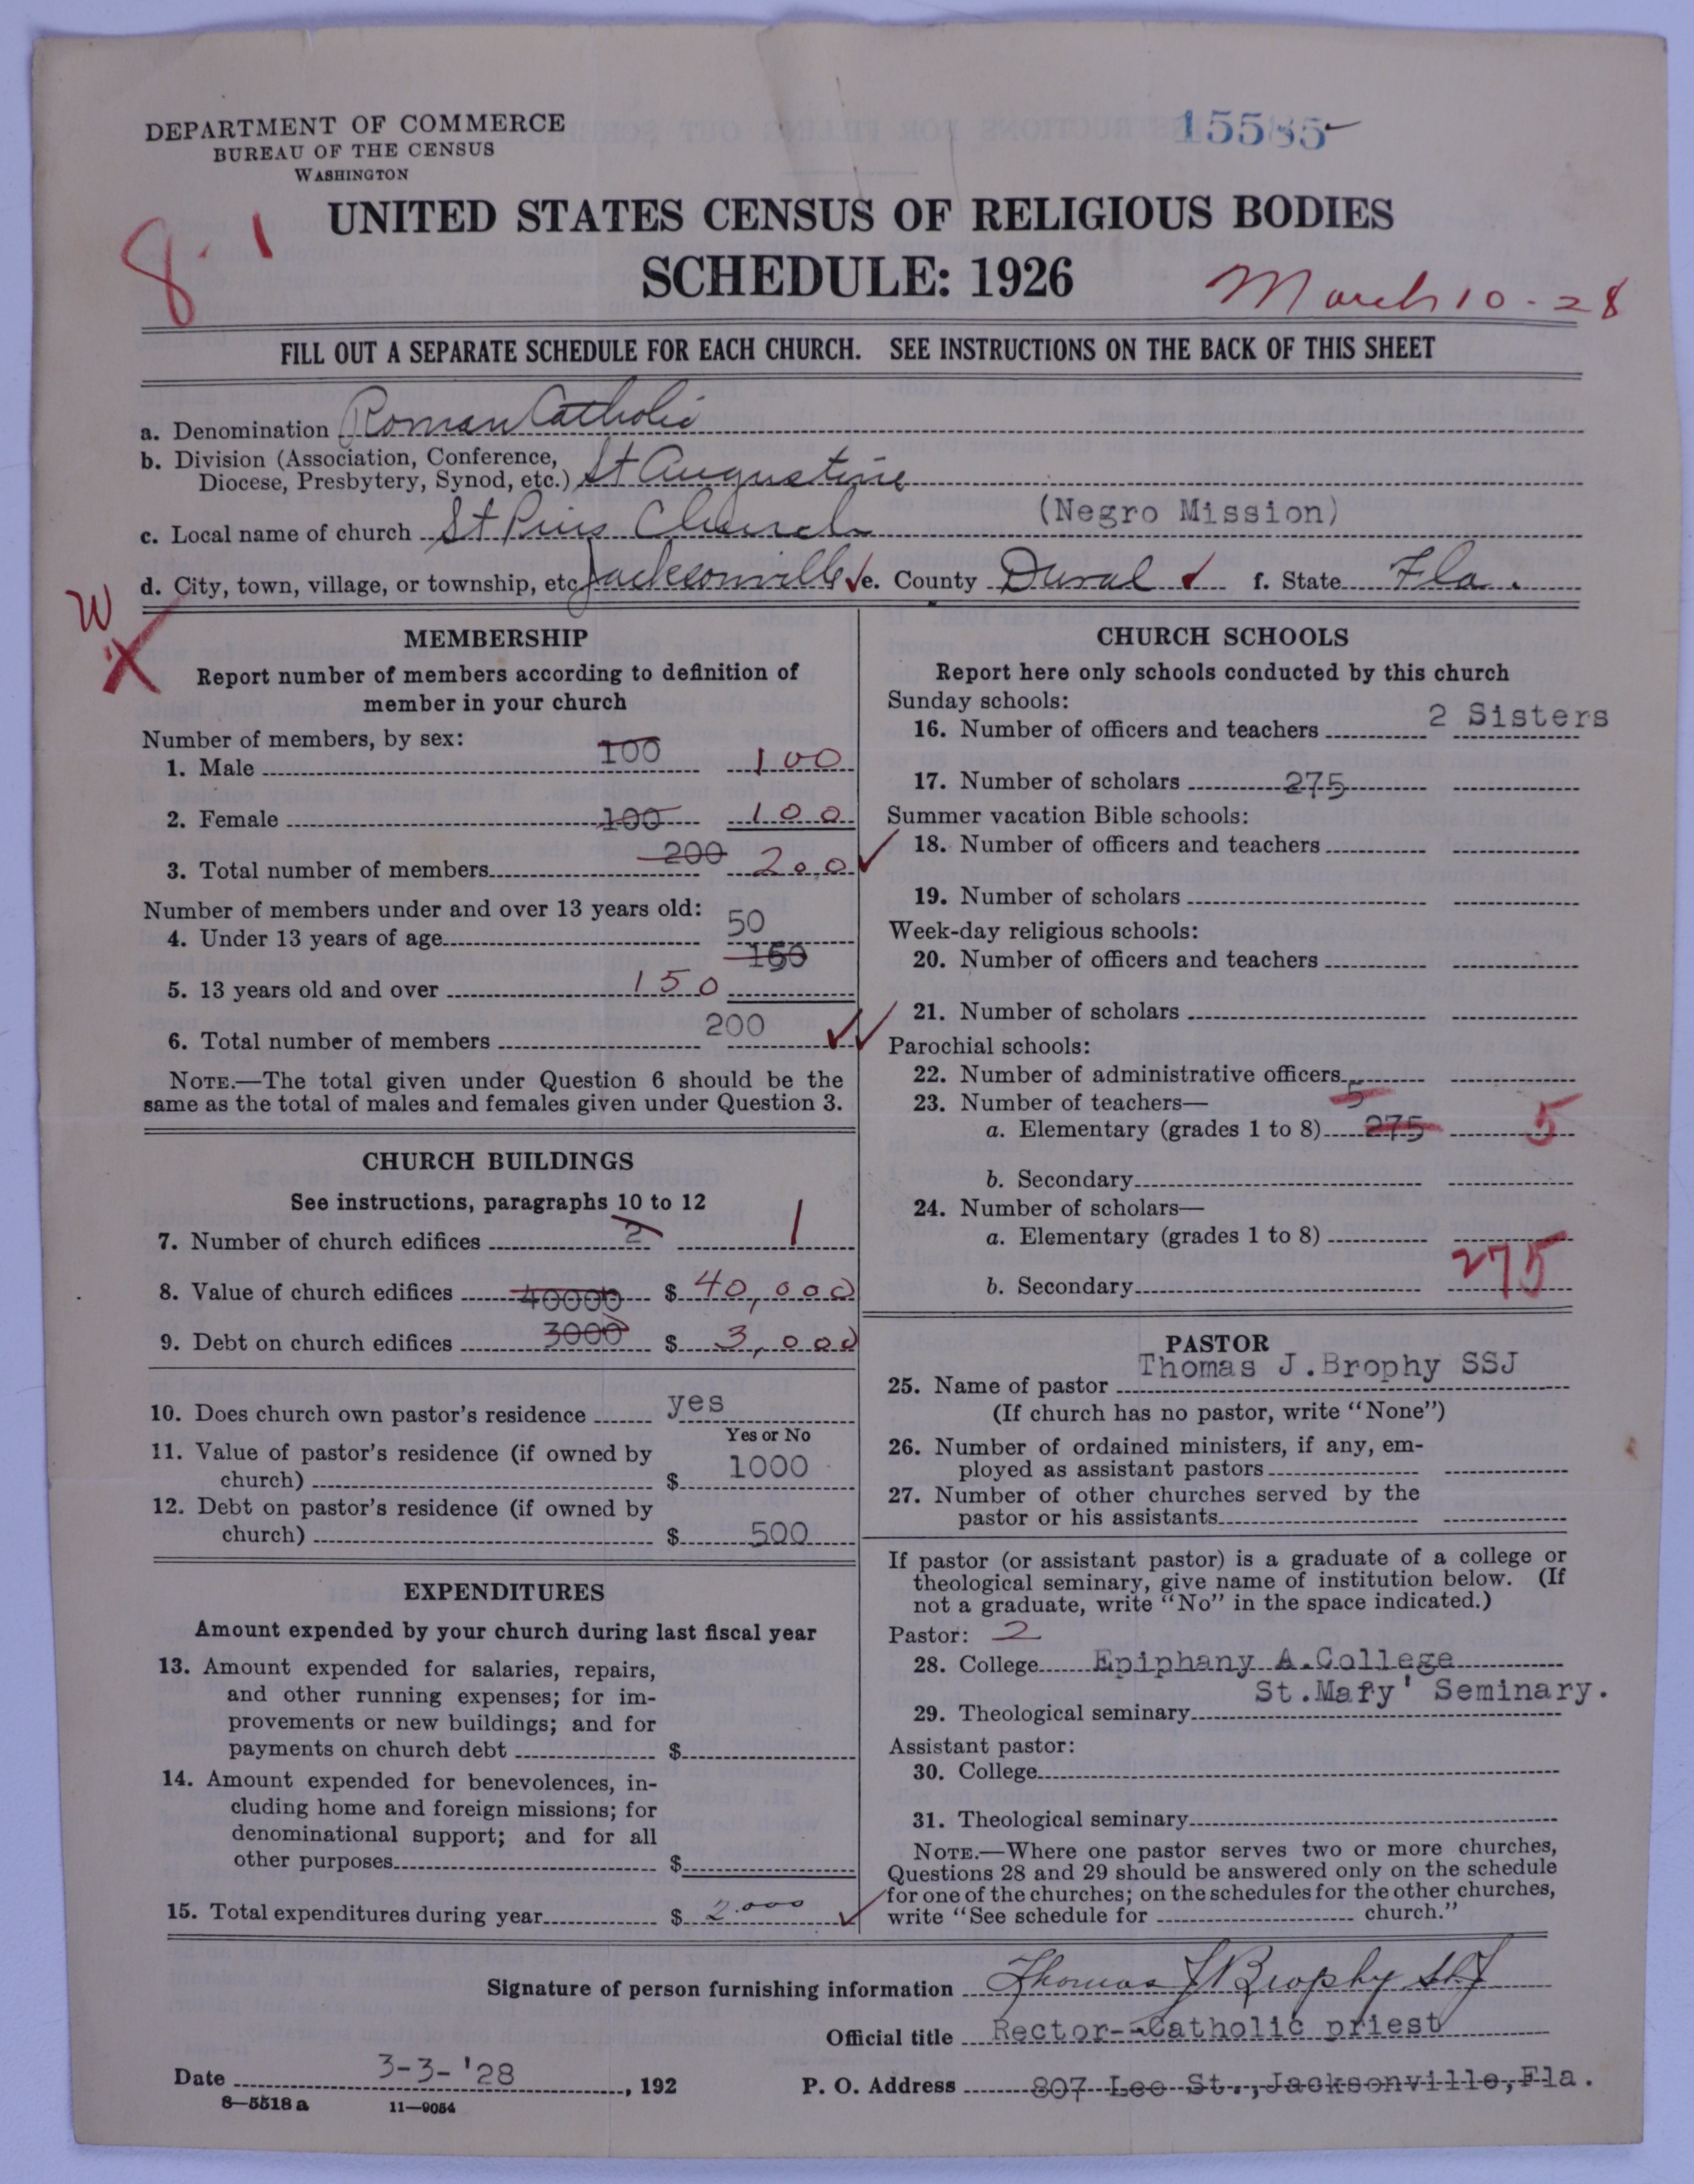 DEPARTMENT OF COMMERCE
BUREAU OF THE CENSUS
WASHINGTON
15585
UNITED STATES CENSUS OF RELIGIOUS BODIES
8.1
SCHEDULE: 1926
March 10-28
FILL OUT A SEPARATE SCHEDULE FOR EACH CHURCH. SEE INSTRUCTIONS ON THE BACK OF THIS SHEET
a. Denomination Roman Catholic
b. Division (Association, Conference,
Diocese, Presbytery, Synod, etc.) St Augustine
c. Local name of church St Pius Church (Negro Mission)
d. City, town, village, or township, etc. Jacksonville e. County Duval f. State Fla.
W
X
MEMBERSHIP
Report number of members according to definition of
member in your church
Number of members, by sex:
1. Male 100 100
2. Female 100 100
3. Total number of members 200 200
Number of members under and over 13 years old:
4. Under 13 years of age 50
150
5. 13 years old and over 150
6. Total number of members 200
NOTE.—The total given under Question 6 should be the
same as the total of males and females given under Question 3.
CHURCH BUILDINGS
See instructions, paragraphs 10 to 12
7. Number of church edifices 2 1
8. Value of church edifices 40000 $ 40,000
9. Debt on church edifices 3000 $ 3,000
10. Does church own pastor's residence yes
Yes or No
11. Value of pastor's residence (if owned by
church) $ 1000
12. Debt on pastor's residence (if owned by
church) $ 500
EXPENDITURES
Amount expended by your church during last fiscal year
13. Amount expended for salaries, repairs,
and other running expenses; for im-
provements or new buildings; and for
payments on church debt $
14. Amount expended for benevolences, in-
cluding home and foreign missions; for
denominational support; and for all
other purposes $
15. Total expenditures during year $ 2.000
CHURCH SCHOOLS
Report here only schools conducted by this church
Sunday schools:
16. Number of officers and teachers 2 Sisters
17. Number of scholars 275
Summer vacation Bible schools:
18. Number of officers and teachers
19. Number of scholars
Week-day religious schools:
20. Number of officers and teachers
21. Number of scholars
Parochial schools:
22. Number of administrative officers
23. Number of teachers— 5
a. Elementary (grades 1 to 8) 275 5
b. Secondary
24. Number of scholars—
a. Elementary (grades 1 to 8)
275
b. Secondary
PASTOR
25. Name of pastor Thomas J.Brophy SSJ
(If church has no pastor, write "None")
26. Number of ordained ministers, if any, em-
ployed as assistant pastors
27. Number of other churches served by the
pastor or his assistants
If pastor (or assistant pastor) is a graduate of a college or
theological seminary, give name of institution below. (If
not a graduate, write "No" in the space indicated.)
Pastor: 2
28. College Epiphany A.College
29. Theological seminary St.Mary' Seminary.
Assistant pastor:
30. College
31. Theological seminary
NOTE.—Where one pastor serves two or more churches,
Questions 28 and 29 should be answered only on the schedule
for one of the churches; on the schedules for the other churches,
write "See schedule for church."
Signature of person furnishing information Thomas J Brophy SSJ
Official title Rector--Catholic priest
Date 3-3-'28, 192
P. O. Address 807 Lee St.,Jacksonville,Fla.
8—5518 a 11—9054